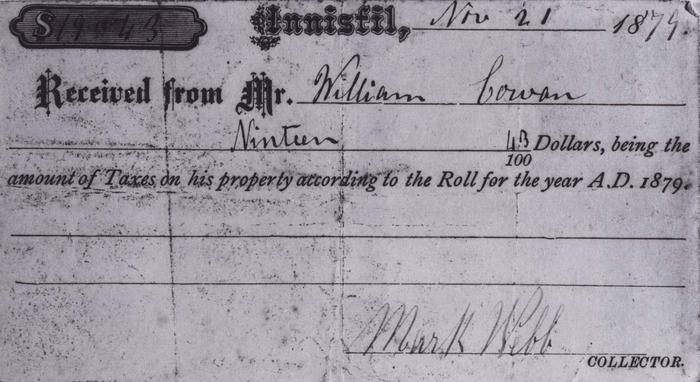 $19 43 Innisfil, Nov 21 1879.
Received from Mr. William Cowan
Ninteen 43/100 Dollars, being the
amount of Taxes on his property according to the Roll for the year A.D. 1879.
Mark Webb
COLLECTOR.